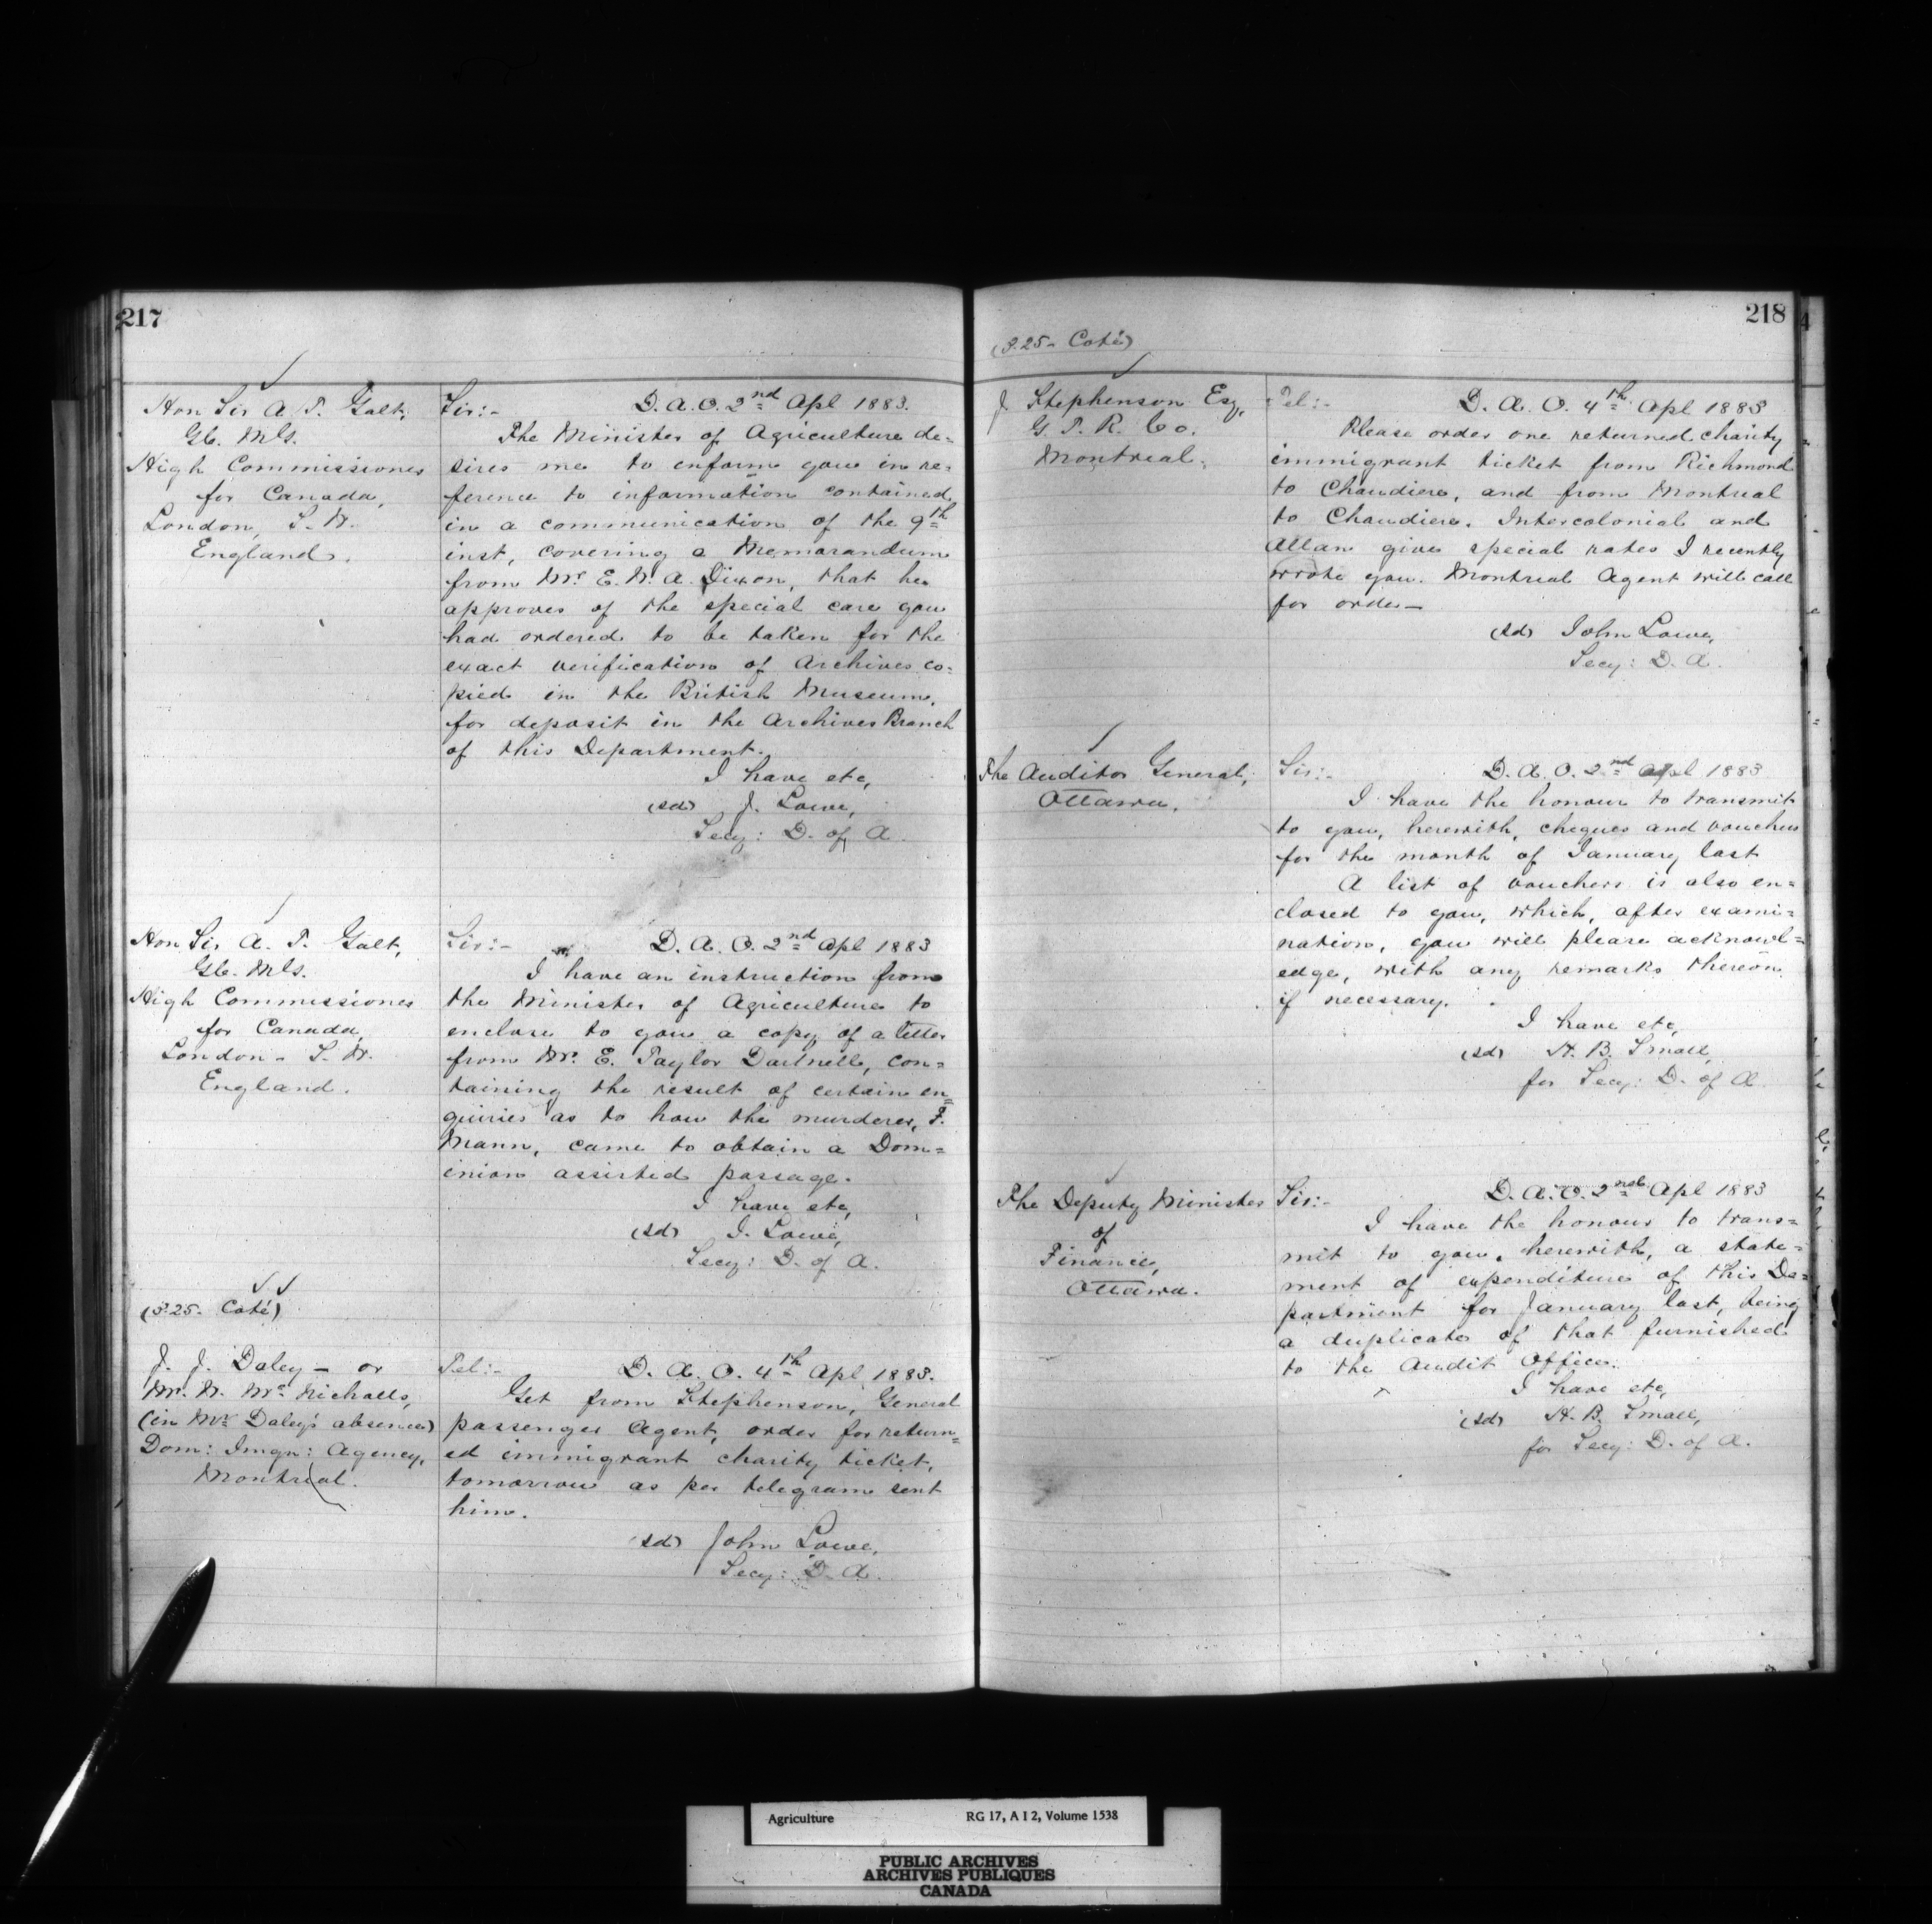 217
Hon Sir A. T. Galt,
G.C.M.G.
High Commissioner
for Canada,
London, S.W.
England.
Sir:- D. A. O. 2nd Apl 1883.
The Minister of Agriculture de=
sires me to inform you in re=
ference to information contained
in a communication of the 9th
inst, covering a Memorandum
from Mr. E. W. A. Dixon, that he
approves of the special care you
had ordered to be taken for the
exact verification of Archives co=
pied in the British Museum,
for deposit in the Archives Branch
of this Department.
I have etc,
(sd) J. Lowe,
Secy: D. of A.
Hon Sir A. T. Galt,
G.C.M.G.
High Commissioner
for Canada,
London - S.W.
England.
Sir:- D. A. O. 2nd Apl 1883
I have an instruction from
the Minister of Agriculture to
enclose to you a copy of a letter
from Mr. E. Taylor Dartnell, con=
taining the result of certain en=
quiries as to how the murderer, F.
Mann, came to obtain a Dom=
inion assisted passage.
I have etc,
(sd) J. Lowe,
Secy: D. of A.
(3.25- Coté)
J. J. Daley - or
Mr. W. McNicholls,
(in Mr. Daley's absence)
Dom: Imgn: Agency,
Montreal.
Tel:- D. A. O. 4th Apl 1883.
Get from Stephenson, General
passenger Agent, order for return=
ed immigrant charity ticket,
tomorrow as per telegram sent
him.
(sd) John Lowe,
Secy: D. A.
218
(3.25- Coté)
J Stephenson Esq,
G. T. R. Co.
Montreal.
Tel:- D. A. O. 4th Apl 1883
Please order one returned charity
immigrant ticket from Richmond
to Chaudiere, and from Montreal
to Chaudiere. Intercolonial and
Allan give special rates I recently
wrote you. Montreal Agent will call
for order-
(sd) John Lowe,
Secy: D. A.
The Auditor General,
Ottawa.
Sir:- D. A. O. 2nd Apl 1883
I have the honour to transmit
to you, herewith, cheques and vouchers
for the month of January last
A list of vouchers is also en=
closed to you, which, after exami=
nation, you will please acknowl=
edge, with any remarks thereon
if necessary.
I have etc,
(sd) H. B. Small,
for Secy: D. of A.
The Deputy Minister
of
Finance,
Ottawa.
Sir:- D. A. O. 2nd Apl 1883
I have the honour to trans=
mit to you, herewith, a state=
ment of expenditure of this De=
partment for January last, being
a duplicate of that furnished
to the Audit Office.
I have etc,
(sd) H. B. Small,
for Secy: D. of A.
Agriculture RG 17, A I 2, Volume 1538
PUBLIC ARCHIVES
ARCHIVES PUBLIQUES
CANADA